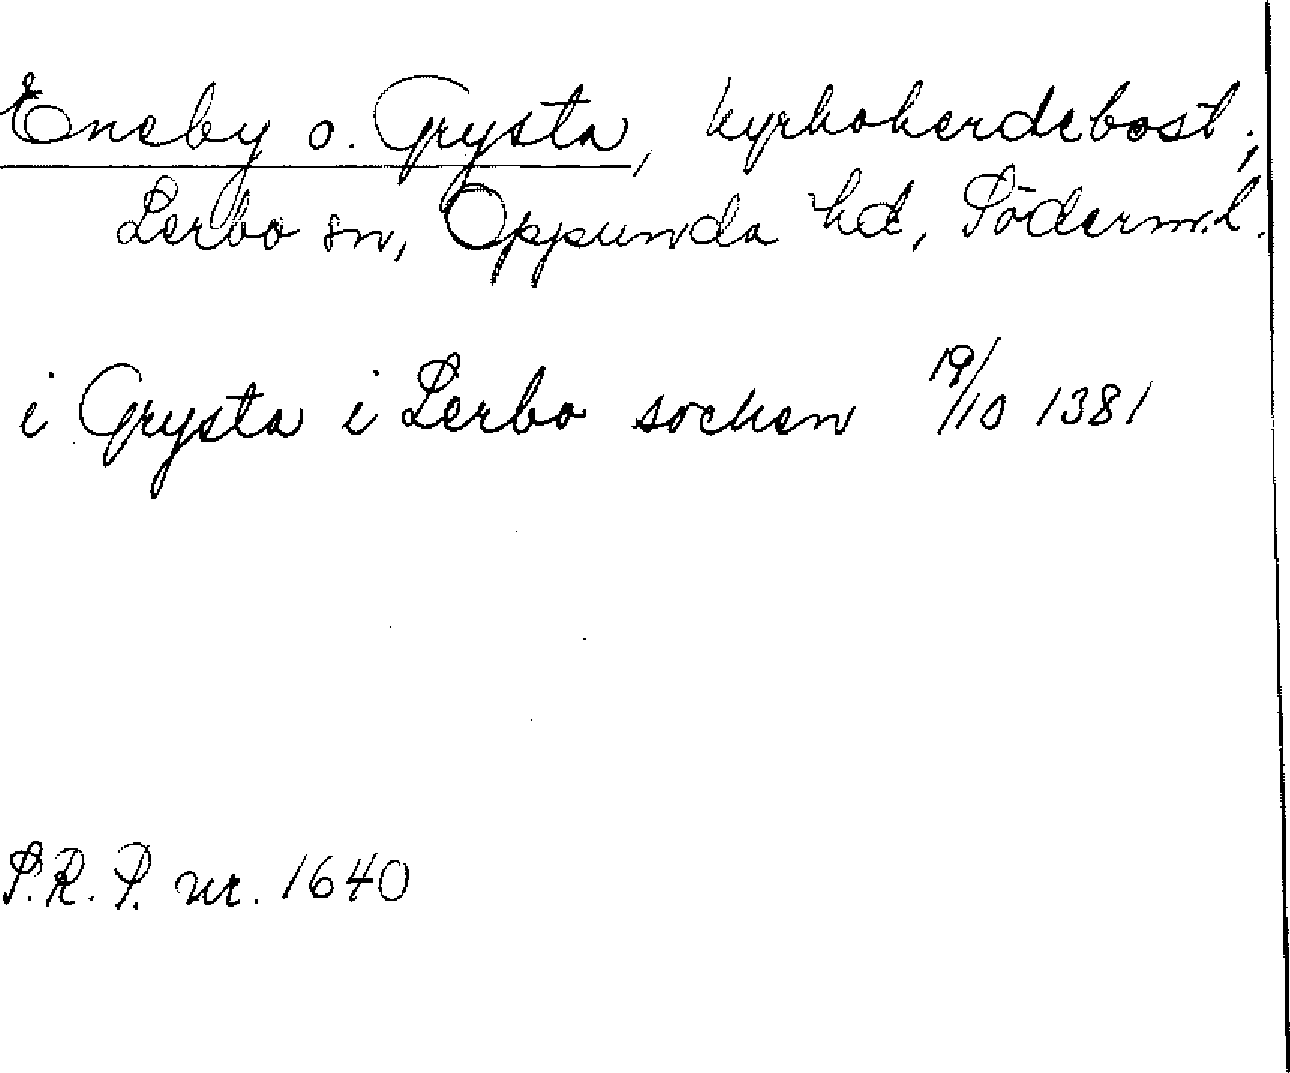 Eneby o. Grysta, kyrkoherdebost.;
Lerbo sn, Oppunda hd, Söderm.l.
i Grysta i Lerbo socken 19/10 1381
S.R.P. nr. 1640